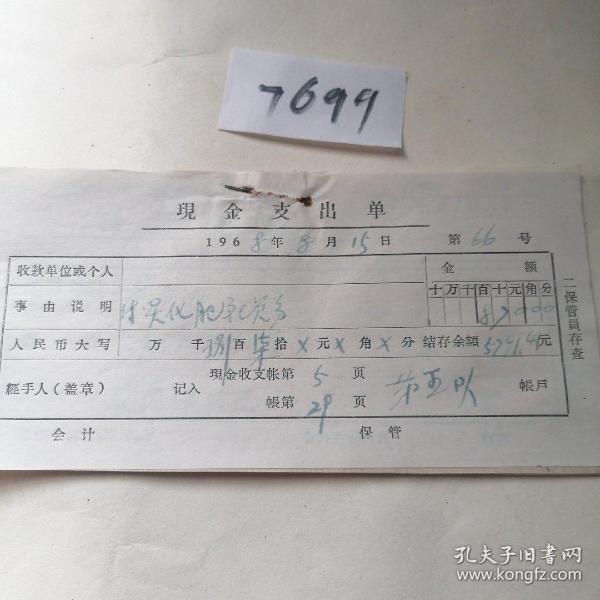 7699
現金支出单
1968年8月15日 第66号
收款单位或个人 金額
事由说明 化肥 十万千百十元角分 87000
人民币大写 万 千 捌百 柒拾 X元 X角 X分 结存余額 元
經手人(盖章) 记入 現金收支帐第5页 帳第29页 第五队 帳戶
会计 保管
二保管員存查
孔夫子旧书网
www.kongfz.com